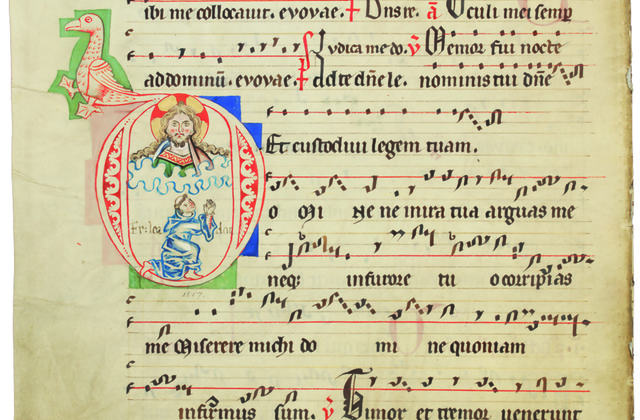 ibi me collocavit. evovae. Dns re. a Oculi mei semp
Iudica me do. v Memor fui nocte
ad dominū. evovae. Ad te dn̄e le. nominis tui dn̄e
Et custodivi legem tuam.
O Mi Ne ne in ira tua arguas me
neq; in furore tu o corripias
me Miserere michi do mi ne quoniam
infirmus sum. v Timor et tremor venerunt